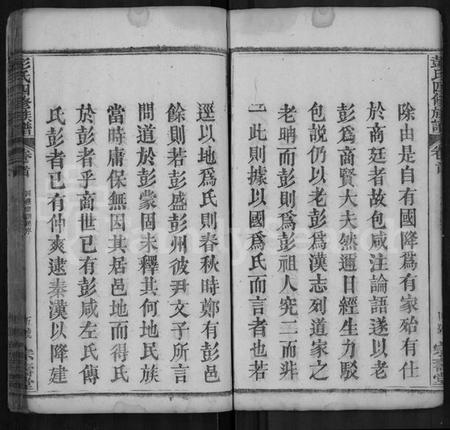 彭氏四修族譜
卷首
除由是自有國降爲有家殆有仕
於商廷者故包咸注論語遂以老
彭爲商賢大夫然邇日經生力駁
包說仍以老彭爲漢志列道家之
老聃而彭則爲彭祖人究二而非
一此則據以國爲氏而言者也若
逕以地爲氏則春秋時鄭有彭邑
餘則若彭盛彭州彼尹文子所言
問道於彭蒙固未釋其何地民族
當時庸保無因其居邑地而得氏
於彭者乎商世已有彭咸左氏傳
氏彭者已有仲爽逮秦漢以降建
彭氏四修族譜
卷首